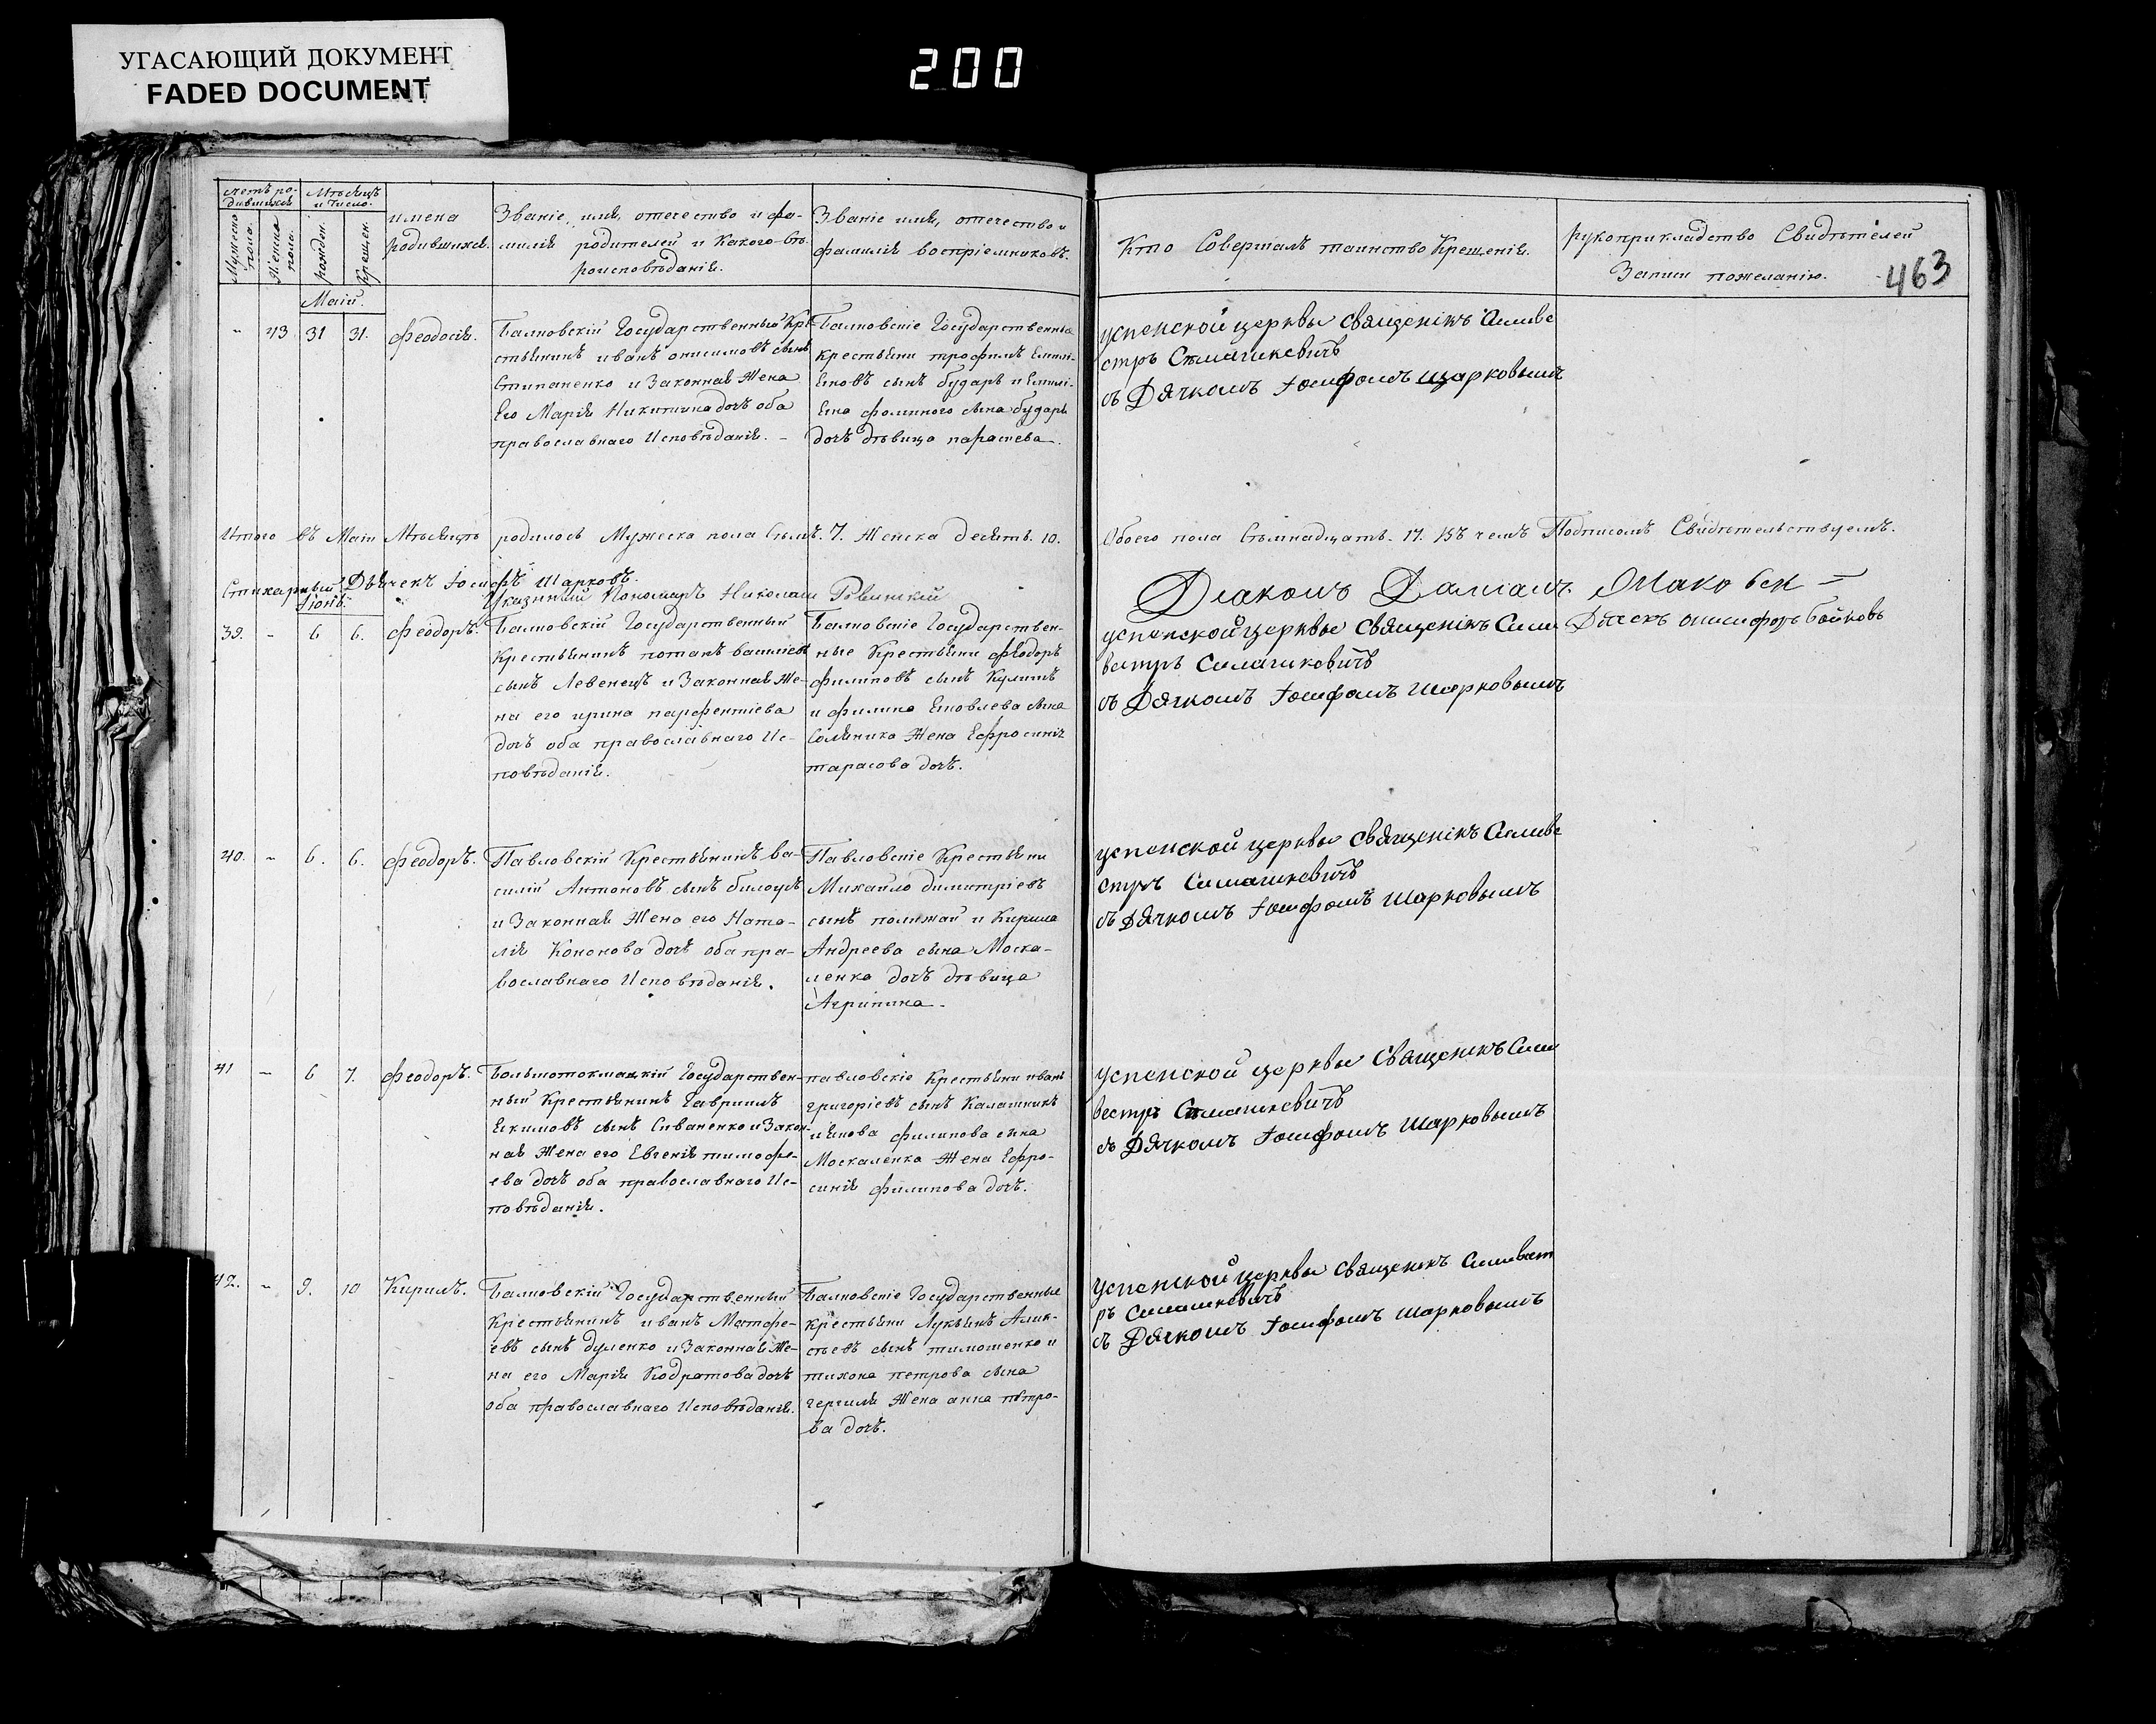 УГАСАЮЩИЙ ДОКУМЕНТ
FADED DOCUMENT
200
счетъ ро-
дившихся
Мѣсяцъ
и число.
Мужеска
пола.
Женска
пола.
рожден.
Крещен.
имена
родившихся.
Званіе, имя, отечество и фа-
милія родителей и Какого вѣ-
роисповѣданія.
Званіе имя, отечество и
фамилія воспріемниковъ.
Кто Совершалъ таинство Крещенія.
рукоприкладство Свидѣтелей
Записи пожеланію.
463
Маій.
" 43. 31 31. Феодосія.
Государственный Кре-
стьянинъ иванъ онисимовъ сынъ
Степаненко и Законная Жена
Его Марія Никитина дочь оба
православнаго Исповѣданія. -
Государственные
крестьяни трофимъ Емели-
яновъ сынъ бударь и Емелі-
яна фоминого сына бударь
дочь дѣвица парасева.
успенской церкви Священікъ Силве
стръ Симашкевичъ
съ Дячкомъ Іосифомъ Шарковымъ
Итого въ Маіи Мѣсяцѣ родилось Мужеска пола Семъ. 7. Женска десять. 10.
Обоего пола Семнадцать. 17. Въ чемъ Подписомъ Свидѣтельствуемъ.
Стихарный Дьячекъ Іосифъ Шарковъ.
Указнный Пономарь Николаи Ровинскій
Діаконъ Даміанъ
Дячекъ онисифоръ бойковъ
Іюнь.
39. - 6 6. Феодоръ.
Государственный
Крестьянинъ потапъ василіевъ
сынъ Левенецъ и Законная Же-
на его ирина парфентіева
дочь оба православнаго Ис-
повѣданія.
Государствен-
ные Крестьяни феодоръ
филиповъ сынъ Кулишъ
и филипа Яковлева сына
Соляника Жена Ефросинія
тарасова дочь.
успенской церкви Священікъ Сили
вестръ Симашковичъ
съ Дячкомъ Іосифомъ Шарковымъ
40. - 6. 6. Феодоръ.
Павловскій Крестьянинъ ва-
силій Антоновъ сынъ билоусъ
и Законная Жена его Ната-
лія Кононова дочь оба пра-
вославнаго Исповѣданія.
Павловскіе Крестьяни
Михайло димитріевъ
сынъ полижай и Кирила
Андреева сына Моска-
ленка дочь дѣвица
Агрипина.
успенской церкви Священікъ Силиве
стръ Симашкевичъ
съ Дячкомъ Іосифомъ Шарковымъ
41 - 6 7. Феодоръ.
Большотокмацкій Государствен-
ный Крестьянинъ Гавриилъ
Екимовъ сынъ Сиваненко и Закон-
ная Жена его Евгенія тимофе-
ева дочь оба православнаго Ис-
повѣданія.
павловскіе Крестьяни иванъ
григоріевъ сынъ Калашникъ
иякова филипова сына
Москаленка Жена Ефро-
синія филипова дочь.
успенской церкви Священикъ Сили
вестръ Симашкевичъ
съ Дячкомъ Іосифомъ Шарковымъ
42. - 9. 10 Кирилъ.
Государственный
Крестьянинъ иванъ Матфе-
евъ сынъ дуленко и Законная Же-
на его Марія Кодратова дочь
оба православнаго Исповѣданія.
Государственные
крестьяни Лукьянъ Алик-
сѣевъ сынъ тимошенко и
тихона петрова сына
Жена анна петро-
ва дочь.
успенской церкви Священикъ Силивест
ръ Симашкевичъ
съ Дячкомъ Іосифомъ Шарковымъ